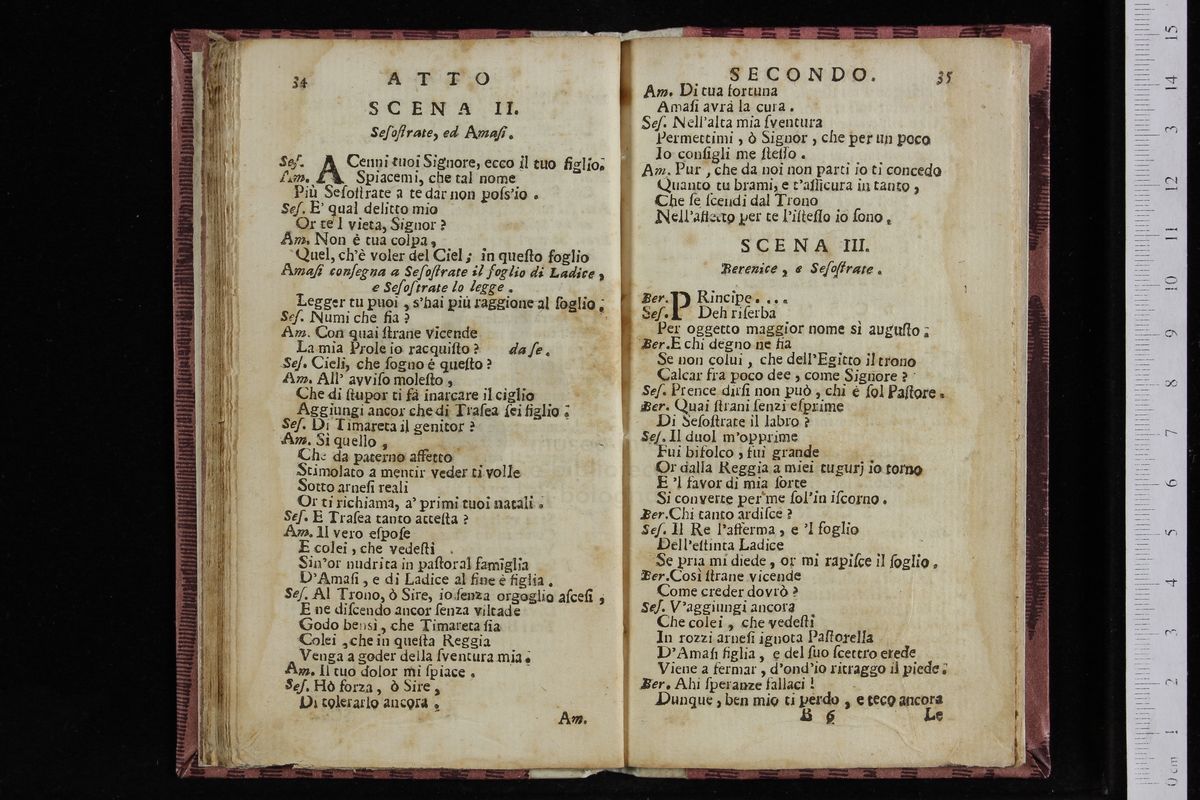 34 ATTO
SCENA II.
Seſoſtrate, ed Amaſi.
Seſ. ACenni tuoi Signore, ecco il tuo figlio.
Am. Spiacemi, che tal nome
Più Seſoſtrate a te dar non poſs'io .
Seſ. E' qual delitto mio
Or te'l vieta, Signor ?
Am. Non è tua colpa,
Quel, ch'è voler del Ciel; in queſto foglio
Amaſi conſegna a Seſoſtrate il foglio di Ladice,
e Seſoſtrate lo legge.
Legger tu puoi, s'hai più raggione al ſoglio.
Seſ. Numi che fia ?
Am. Con quai ſtrane vicende
La mia Prole io racquiſto ? da ſe.
Seſ. Cieli, che ſogno è queſto ?
Am. All' avviſo moleſto,
Che di ſtupor ti fà inarcare il ciglio
Aggiungi ancor che di Traſea ſei figlio.
Seſ. Di Timareta il genitor ?
Am. Sì quello,
Che da paterno affetto
Stimolato a mentir veder ti volle
Sotto arneſi reali
Or ti richiama, a' primi tuoi natali.
Seſ. E Traſea tanto atteſta ?
Am. Il vero eſpoſe
E colei, che vedeſti
Sin'or nudrita in paſtoral famiglia
D'Amaſi, e di Ladice al fine è figlia.
Seſ. Al Trono, ò Sire, io ſenza orgoglio aſceſi,
E ne diſcendo ancor ſenza viltade
Godo bensì, che Timareta ſia
Colei, che in queſta Reggia
Venga a goder della ſventura mia.
Am. Il tuo dolor mi ſpiace.
Seſ. Hò forza, ò Sire,
Di tolerarlo ancora.
Am.
SECONDO. 35
Am. Di tua fortuna
Amaſi avrà la cura.
Seſ. Nell'alta mia ſventura
Permettimi, ò Signor, che per un poco
Io conſigli me ſteſſo.
Am. Pur, che da noi non parti io ti concedo
Quanto tu brami, e t'aſſicura in tanto,
Che ſe ſcendi dal Trono
Nell'affetto per te l'iſteſſo io ſono.
SCENA III.
Berenice, e Seſoſtrate.
Ber. PRincipe....
Seſ. Deh riſerba
Per oggetto maggior nome sì auguſto.
Ber. E chi degno ne fia
Se non colui, che dell'Egitto il trono
Calcar fra poco dee, come Signore ?
Seſ. Prence dirſi non può, chi è ſol Paſtore.
Ber. Quai ſtrani ſenzi eſprime
Di Seſoſtrate il labro ?
Seſ. Il duol m'opprime
Fui bifolco, fui grande
Or dalla Reggia a miei tugurj io torno
E 'l favor di mia ſorte
Si converte per me ſol'in iſcorno.
Ber. Chi tanto ardiſce ?
Seſ. Il Re l'afferma, e 'l foglio
Dell'eſtinta Ladice
Se pria mi diede, or mi rapiſce il ſoglio.
Ber. Così ſtrane vicende
Come creder dovrò ?
Seſ. V'aggiungi ancora
Che colei, che vedeſti
In rozzi arneſi ignota Paſtorella
D'Amaſi figlia, e del ſuo ſcettro erede
Viene a fermar, d'ond'io ritraggo il piede.
Ber. Ahi ſperanze fallaci !
Dunque, ben mio ti perdo, e teco ancora
B 6 Le
0 cm 1 2 3 4 5 6 7 8 9 10 11 12 13 14 15